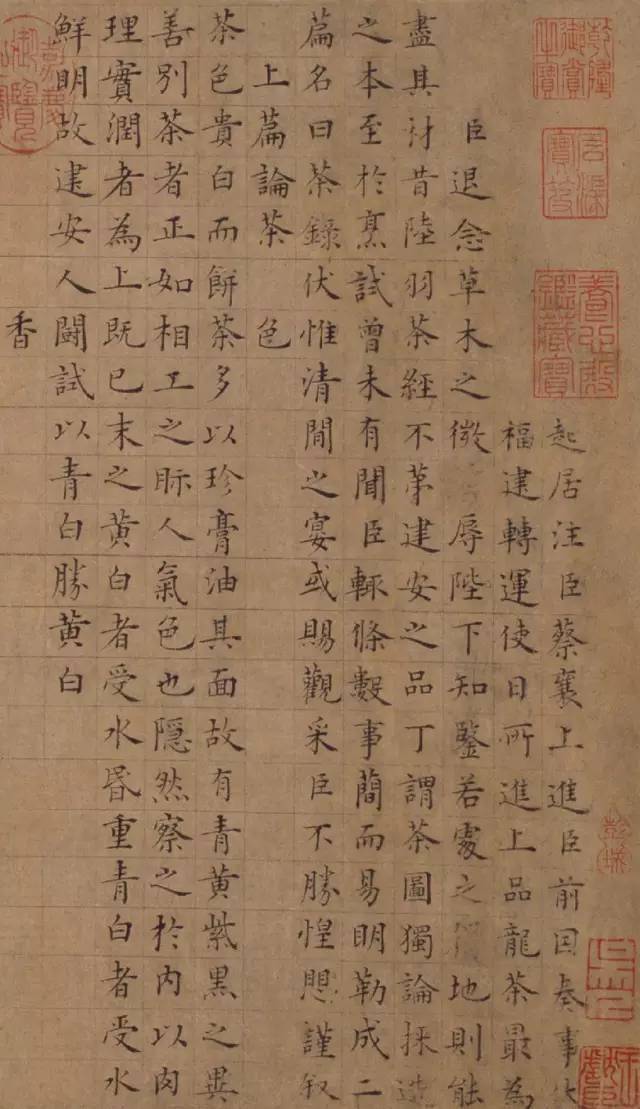 乾隆御賞之寶
石渠寶笈
養心殿鑑藏寶
起居注臣蔡襄上進臣前因奏事
福建轉運使日所進上品龍茶最為
臣退念草木之微辱陛下知鑒若處之地則能
盡其材昔陸羽茶經不苐建安之品丁謂茶圖獨論採造
之本至於烹試曾未有聞臣輒條數事蕳而易明勒成二
篇名曰茶錄伏惟清閒之宴或賜觀采臣不勝惶懼謹叙
上篇論茶
色
茶色貴白而餅茶多以珍膏油其面故有青黃紫黑之異
善別茶者正如相工之眎人氣色也隱然察之於內以肉
理實潤者為上既已末之黃白者受水昏重青白者受水
鮮明故建安人鬭試以青白勝黃白
香
嘉慶御覽之寶